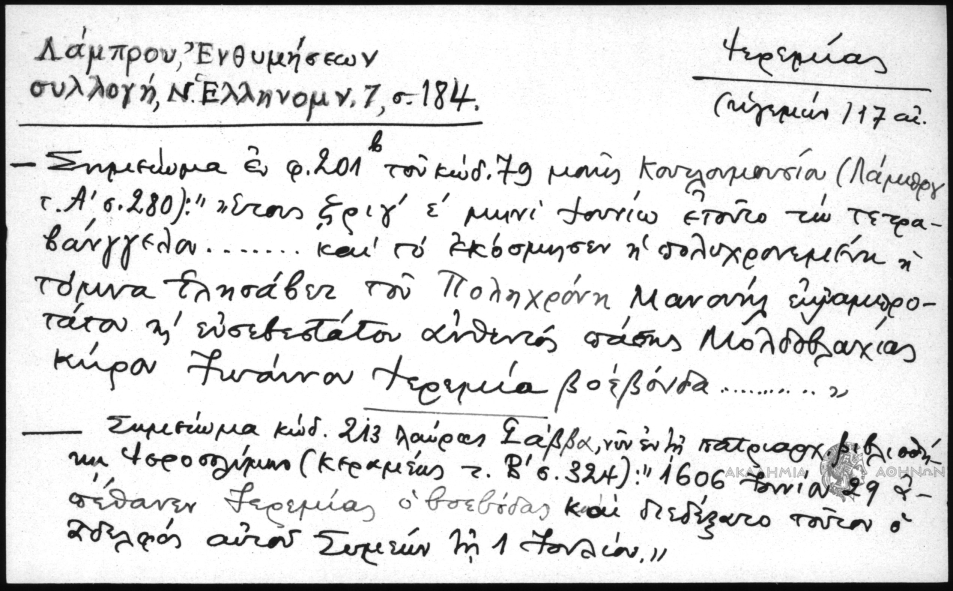 Λάμπρου, Ἐνθυμήσεων
συλλογή, Ν. Ἑλληνομν. 7, σ. 184.
Ἱερεμίας
(ἡγεμών) 17 αἰ.
— Σημείωμα ἐν φ. 201β τοῦ κώδ. 79 μονῆς Κουτλουμουσίου (Λάμπρου
τ. Α' σ. 280): "Ἔτους ζριγ' ἐ' μηνὶ Ἰουνίω ἐτοῦτο τὼ τετρα-
βάνγγελον ....... καὶ τὸ ἐκόσμησεν ἡ πολυχρονεμένη ἡ
τόμνα Ἐλησάβετ τοῦ Πολιχρόνη
τάτου κ' εὐσεβεστάτου αὐθεντὸς πάσης Μολδοβλαχίας
κύρου Ἰωάννου Ἱερεμία βοέβόνδα .......... »
— Σημείωμα κώδ. 213 λαύρας Σάββα, νῦν ἐν τῇ πατριαρχ. βιβλιοθή-
κῃ Ἱεροσολύμων (Κεραμέως τ. Β' σ. 324): "1606 Ἰουνίου 29 ἀ-
πέθανεν Ἱερεμίας ὁ βοεβόδας καὶ διεδέξατο τοῦτον ὁ
ἀδελφός αὐτοῦ Συμεών τῇ 1 Ἰουλίου."
ΑΚΑΔΗΜΙΑ ΑΘΗΝΩΝ